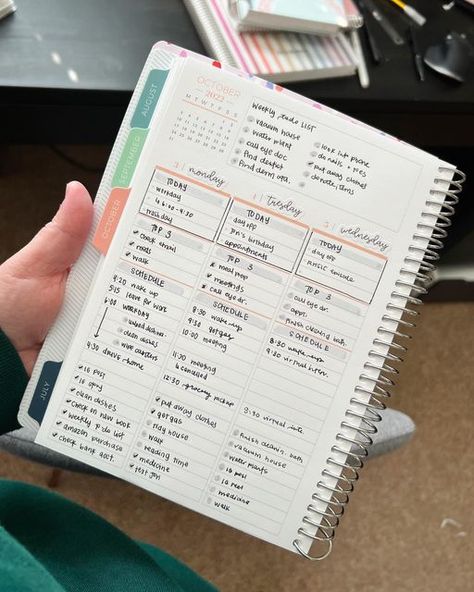 AUGUST
SEPTEMBER
OCTOBER
JULY
OCTOBER
2023
M T W T F S S
Weekly to do LIST
vacuum house
water plant
call eye doc
find dentist
find derm opn.
look into phone
do nails + toes
put away clothes
donate items
2 monday
TODAY
workday
6:00 - 4:30
trash day
TOP 3
check email
meds
walk
SCHEDULE
9:30 wake up
5:15 leave for work
6:00 WORKDAY
clean dishes
4:30 drive home
16 post
16 story
clean dishes
check on new book
weekly to do list
amazon purchase
check bank acct.
3 tuesday
TODAY
day off
Jon's birthday
appointments
TOP 3
meal prep
meetings
call eye dr.
SCHEDULE
8:30 wake-up
9:30 get gas
10:00 meeting
11:00 meeting
cancelled
12:30 grocery pickup
put away clothes
got gas
tidy house
walk
reading time
medicine
text Jon
4 wednesday
TODAY
day off
TOP 3
call eye dr.
appt.
finish cleaning bath.
SCHEDULE
8:30 wake-up
9:30 virtual
3:30 virtual
finish cleanin bath.
vacuum house
water plants
16 post
16 reel
medicine
walk